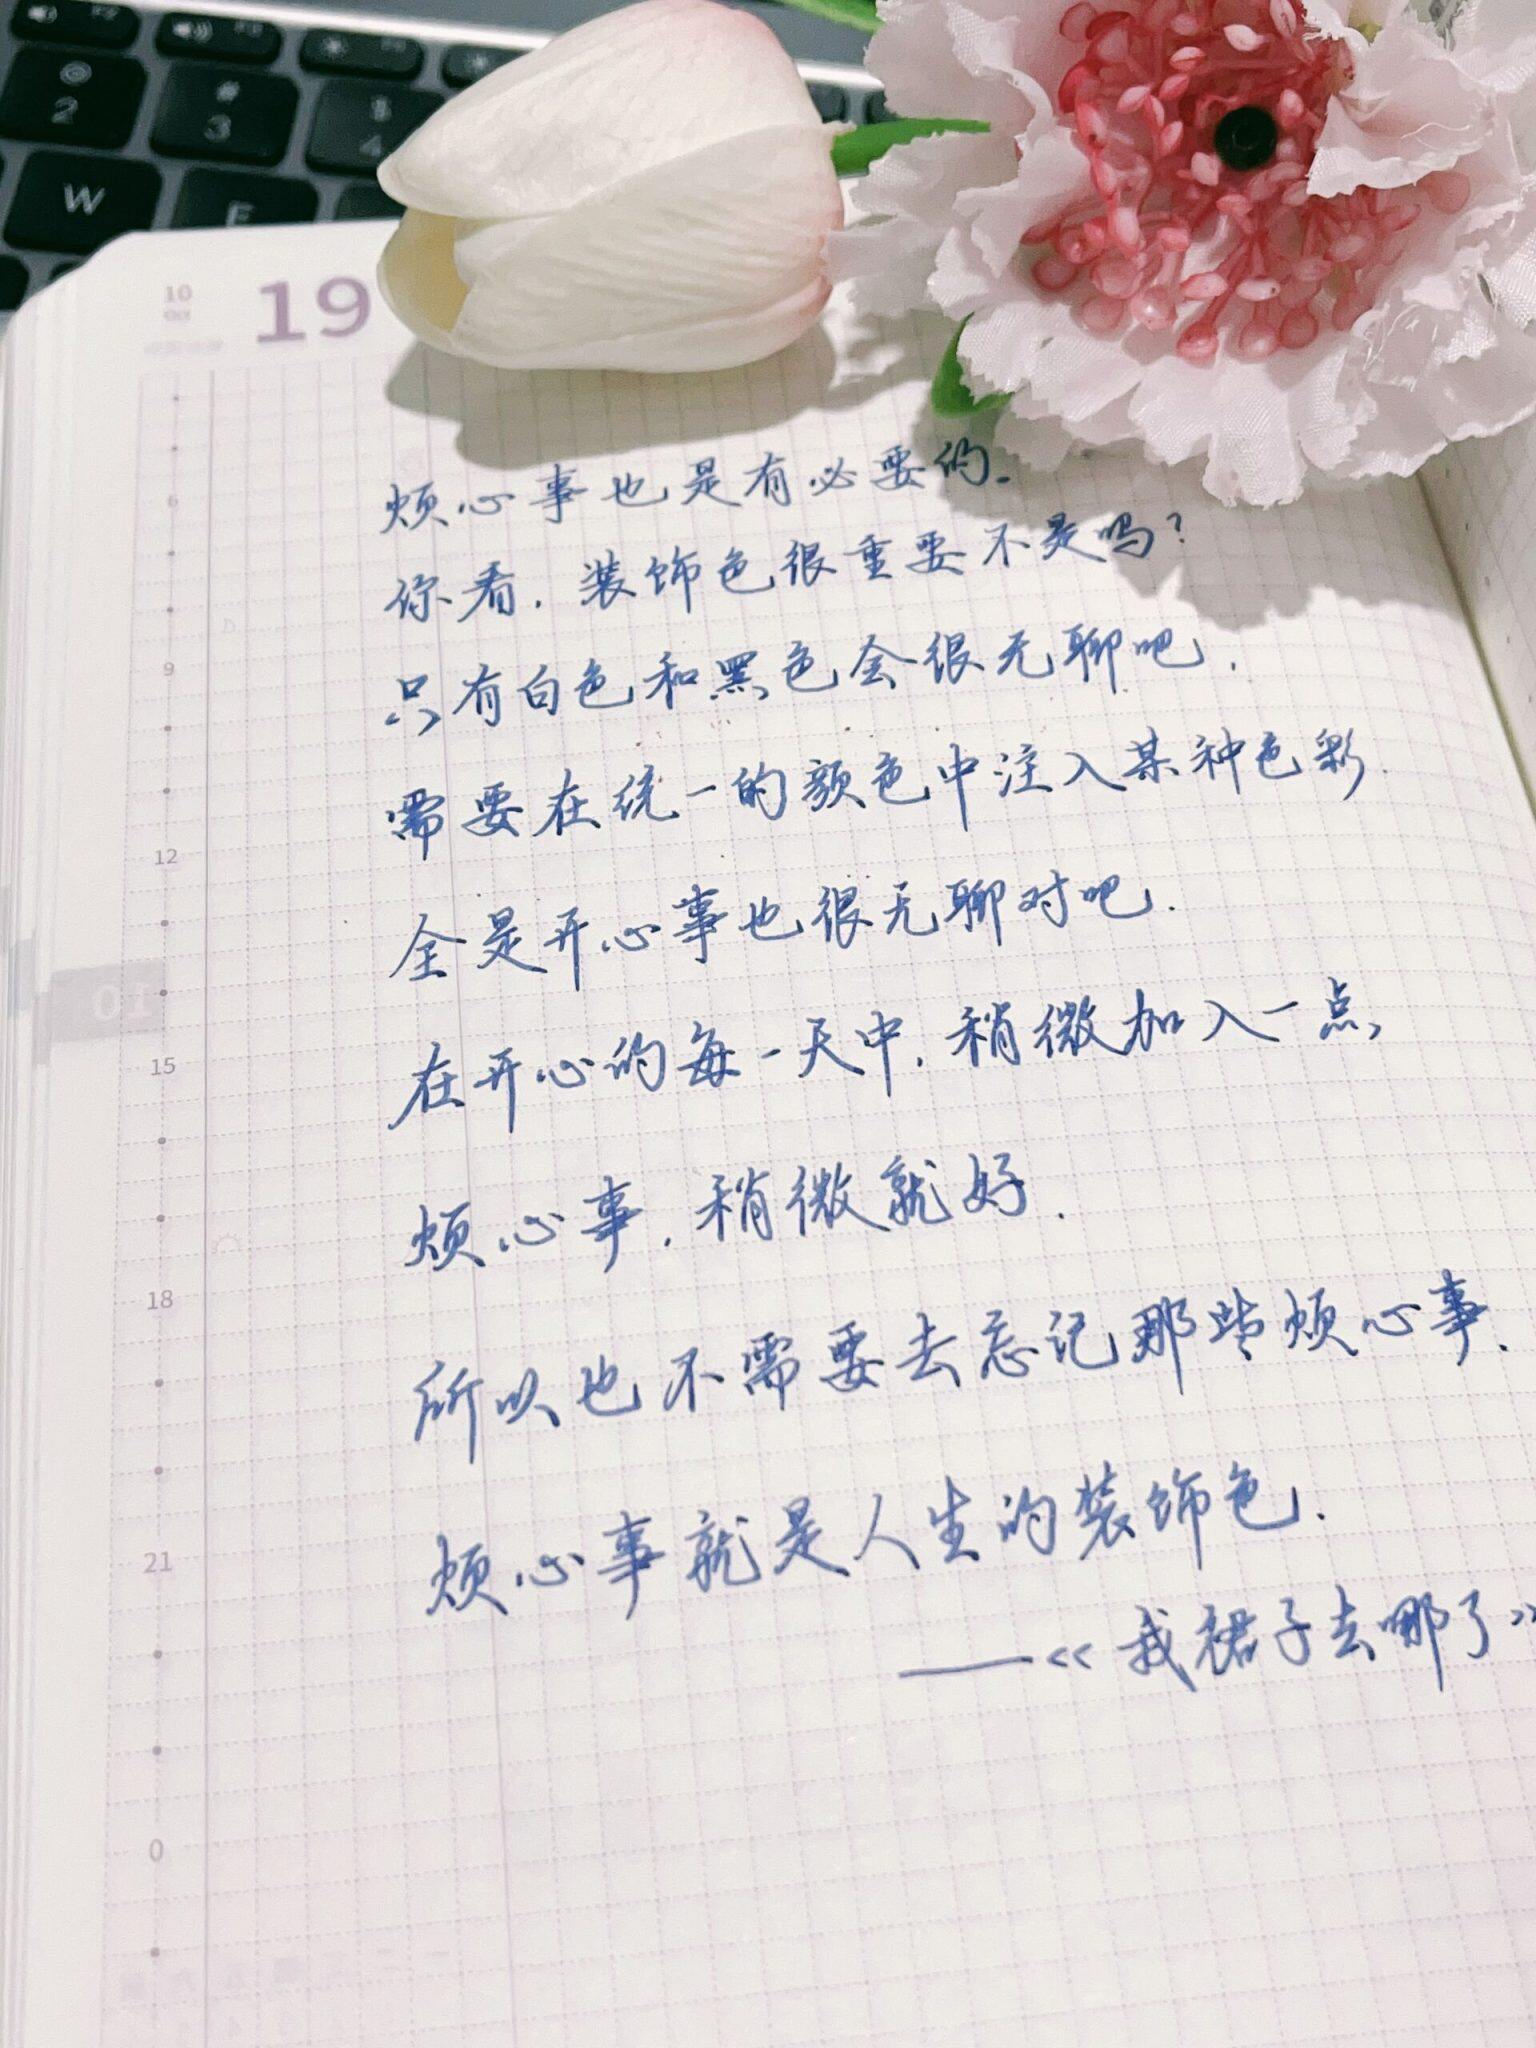 F1
F2
F3
@
2
#
3
$
4
W
E
10
Oct
19
烦心事也是有必要的.
你看.装饰色很重要不是吗?
只有白色和黑色会很无聊吧.
需要在统一的颜色中注入某种色彩.
全是开心事也很无聊对吧.
在开心的每一天中.稍微加入一点
烦心事.稍微就好.
所以也不需要去忘记那些烦心事.
烦心事就是人生的装饰色.
——《我裙子去哪了》
6
9
12
01
15
18
21
0